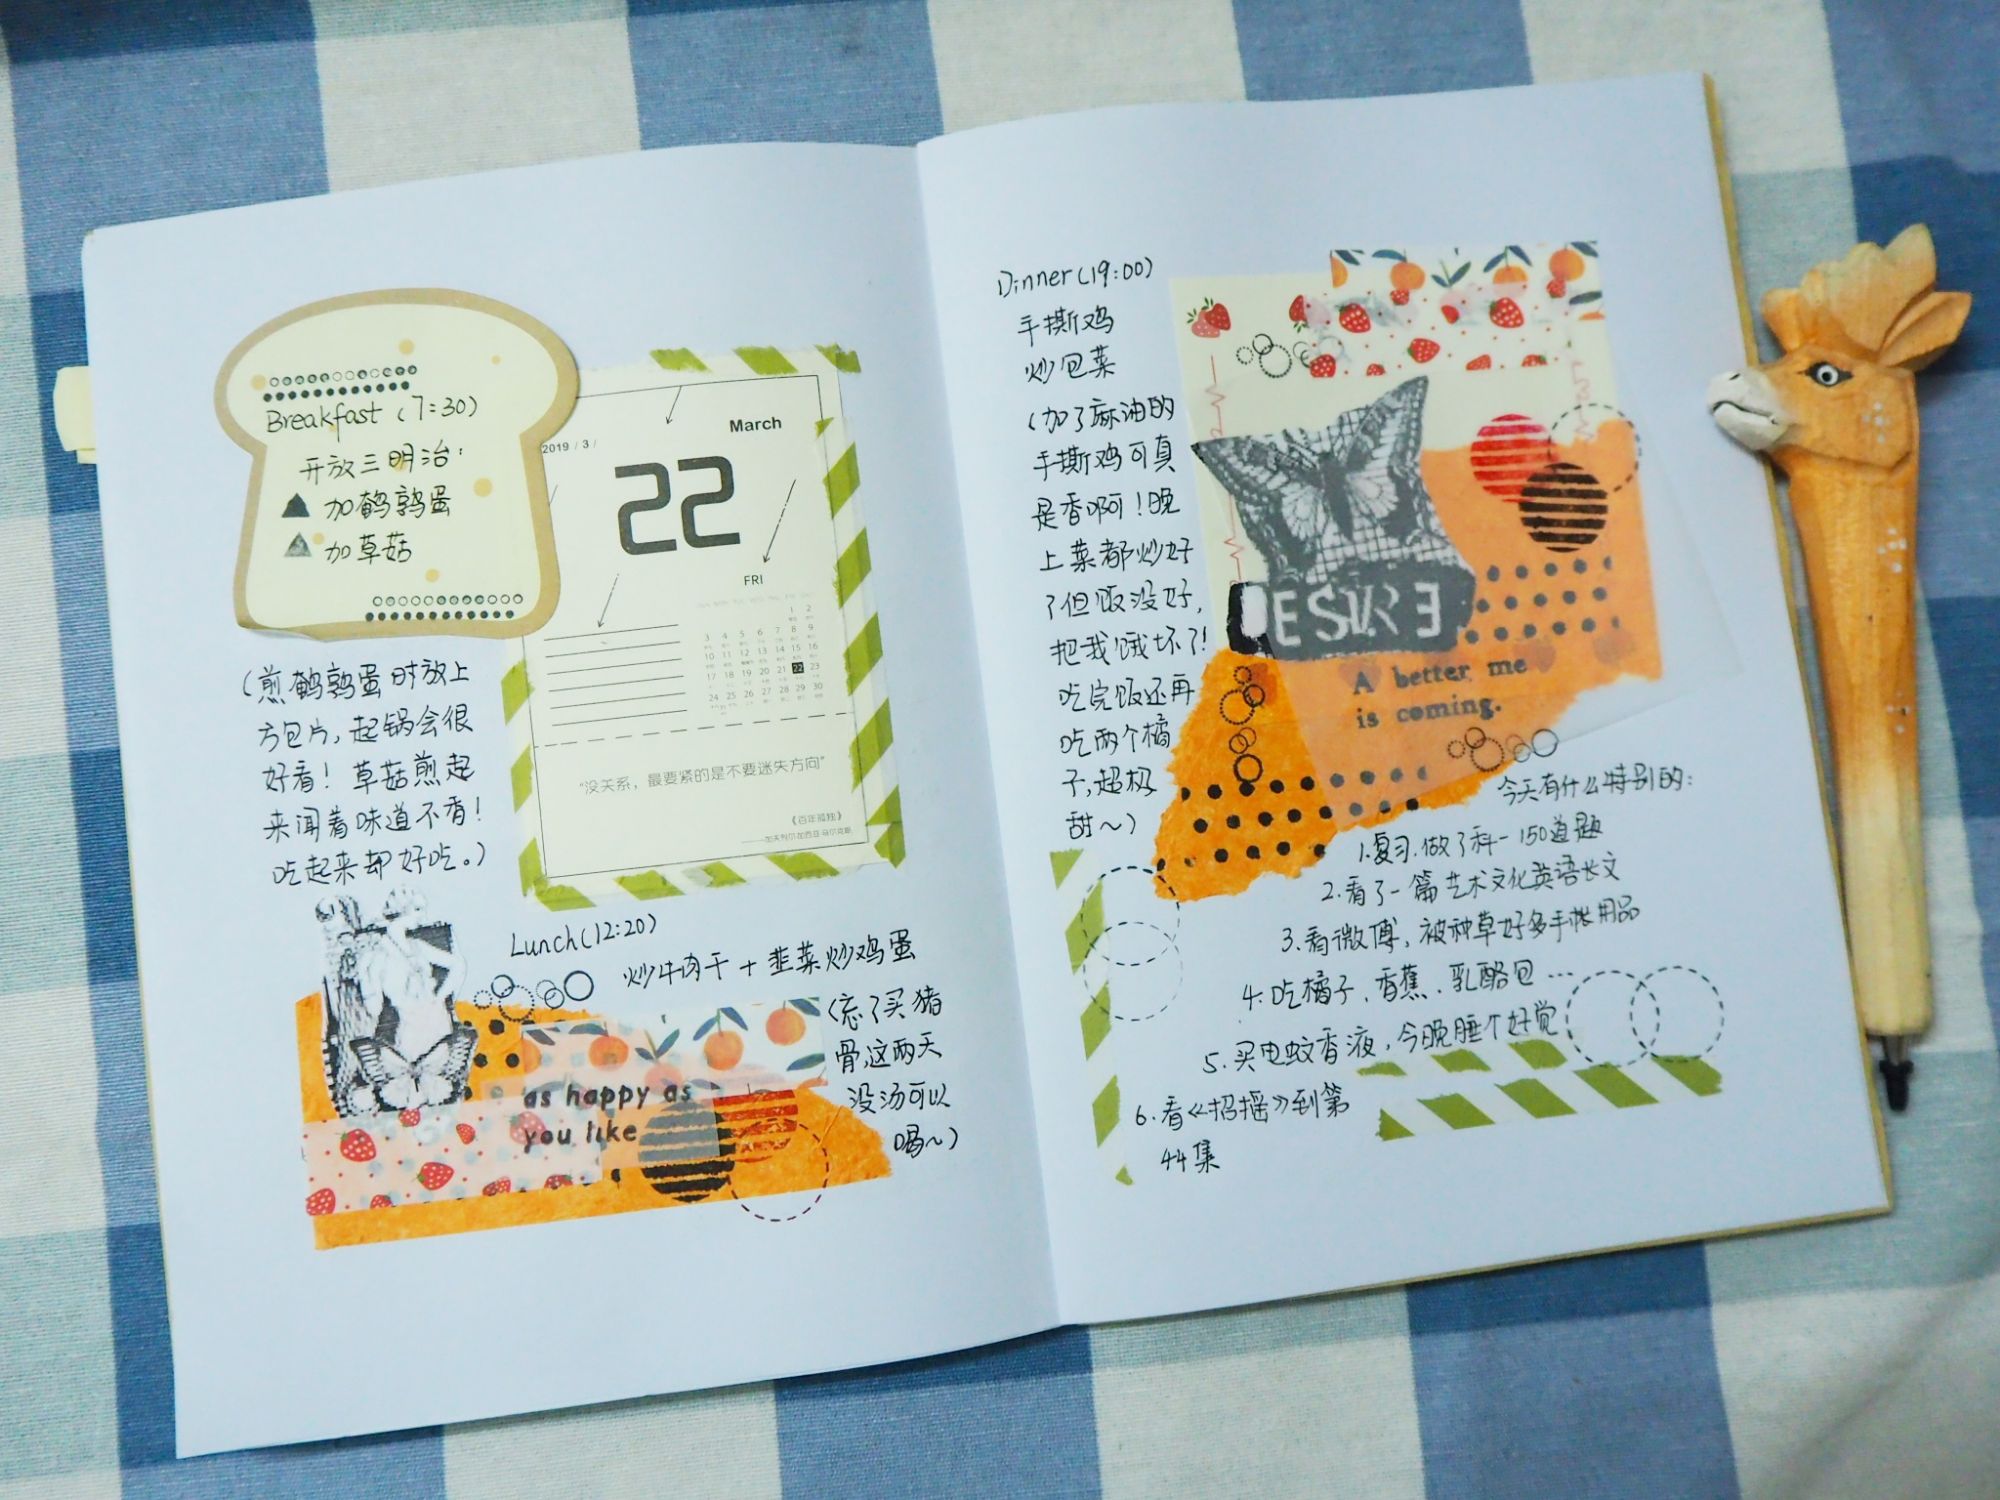 Breakfast (7:30)
开放三明治:
▲ 加鹌鹑蛋
▲ 加草菇
(煎鹌鹑蛋时放上
方包片,起锅会很
好看！草菇煎起
来闻着味道不香！
吃起来却好吃。)
2019 / 3 /
March
22
FRI
1 2
3 4 5 6 7 8 9
10 11 12 13 14 15 16
17 18 19 20 21 22 23
24 25 26 27 28 29 30
“没关系，最要紧的是不要迷失方向”
《百年孤独》
——加夫列尔·加西亚·马尔克斯
Lunch (12:20)
炒牛肉干 + 韭菜炒鸡蛋
(忘了买猪
骨,这两天
没汤可以
喝~)
as happy as
you like
Dinner (19:00)
手撕鸡
炒包菜
(加了麻油的
手撕鸡可真
是香啊！晚
上菜都炒好
了但饭没好,
把我饿坏了!
吃完饭还再
吃两个橘
子,超极
甜~)
DESIRE
A better me
is coming.
今天有什么特别的:
1.复习.做了科一150道题
2.看了一篇艺术文化英语长文
3.看微博,被种草好多手帐用品
4.吃橘子、香蕉、乳酪包…
5.买电蚊香液,今晚睡个好觉
6.看《招摇》到第
44集